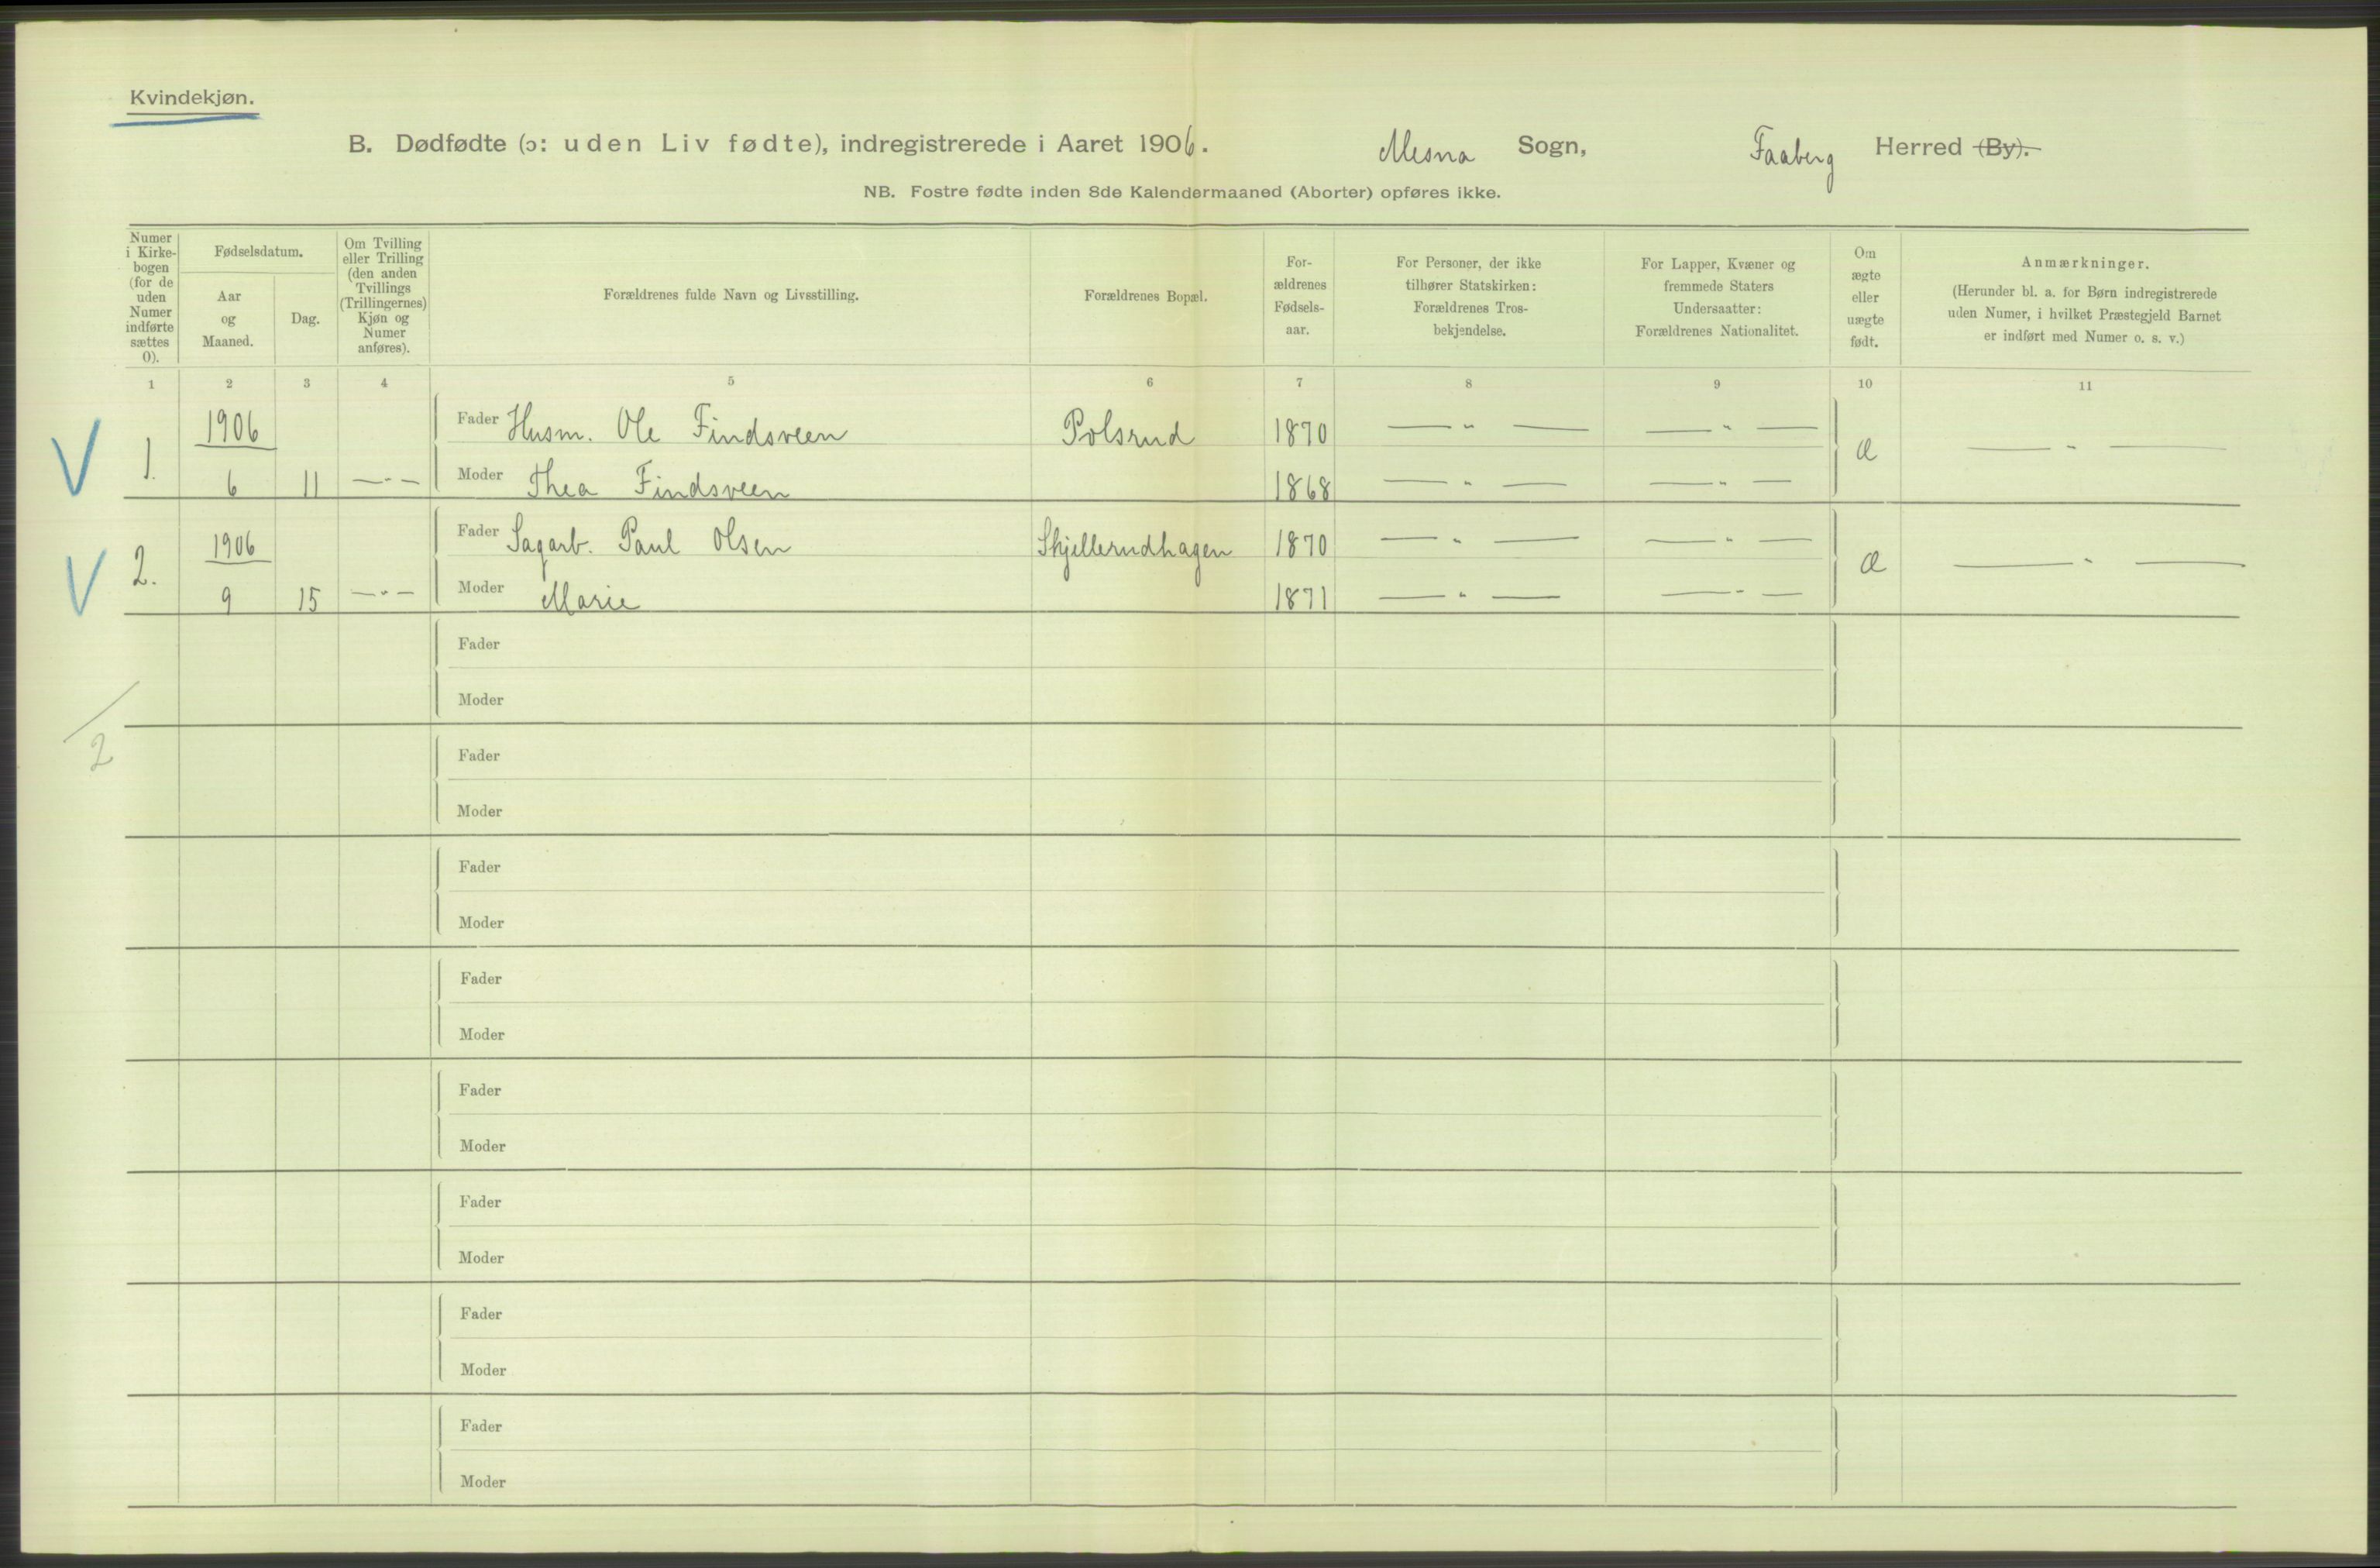 Kvindekjøn.
B. Dødfødte (ɔ: uden Liv fødte), indregistrerede i Aaret 1906. Mesna Sogn, Faaberg Herred (By).
NB. Fostre fødte inden 8de Kalendermaaned (Aborter) opføres ikke.
Numer
i Kirke-
bogen
(for de
uden
Numer
indførte
sættes
0).
Fødselsdatum.
Aar
og
Maaned.
Dag.
Om Tvilling
eller Trilling
(den anden
Tvillings
(Trillingernes)
Kjøn og
Numer
anføres).
Forældrenes fulde Navn og Livsstilling.
Forældrenes Bopæl.
For-
ældrenes
Fødsels-
aar.
For Personer, der ikke
tilhører Statskirken:
Forældrenes Tros-
bekjendelse.
For Lapper, Kvæner og
fremmede Staters
Undersaatter:
Forældrenes Nationalitet.
Om
ægte
eller
uægte
født.
Anmærkninger.
(Herunder bl. a. for Børn indregistrerede
uden Numer, i hvilket Præstegjeld Barnet
er indført med Numer o. s. v.)
1 2 3 4 5 6 7 8 9 10 11
V 1. 1906 Fader Husm. Ole Findsveen Polsrud 1870 — " — — " — Æ — " —
6 11 — " — Moder Thea Findsveen 1868 — " — — " —
V 2. 1906 Fader Sagarb. Paul Olsen Skjellerudhagen 1870 — " — — " — Æ — " —
9 15 — " — Moder Marie 1871 — " — — " —
Fader
Moder
2
Fader
Moder
Fader
Moder
Fader
Moder
Fader
Moder
Fader
Moder
Fader
Moder
Fader
Moder